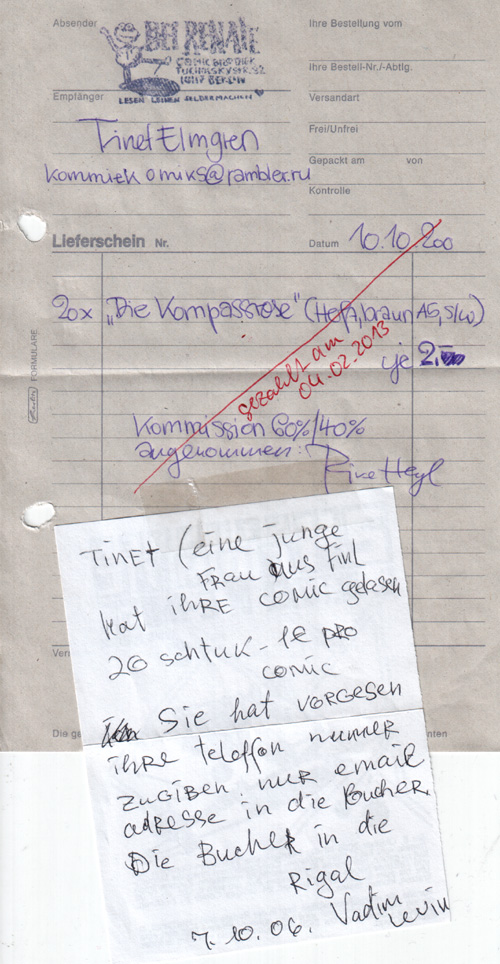 Absender
BEI RENATE
COMICBIBLIOTHEK
TUCHOLSKYSTR. 32
10117 BERLIN
LESEN LEIHEN SELBERMACHEN
Ihre Bestellung vom
Ihre Bestell-Nr./Abtlg.
Empfänger
Versandart
Tinet Elmgren
Frei/Unfrei
kommiekomiks@rambler.ru
Gepackt am von
Kontrolle
Lieferschein Nr.
Datum 10.10.200
20x „Die Kompassrose" (Heft, braun A5, S/W)
je 2,-
gezahlt am
04.02.2013
FORMULARE
Kommission 60%/40%
angenommen:
Rike Heyl
TINET (eine junge
FRAU aus Finl
hat iHRE COMIC gelasen
20 schtuk - 1€ pro
comic
Sie hat vorgesen
ihre teloffon nummer
zugiben. nur email
adresse in die Bucher.
Die Bucher in die
Rigal
7.10.06. Vadim
Levin
Ver
Die ge
nten